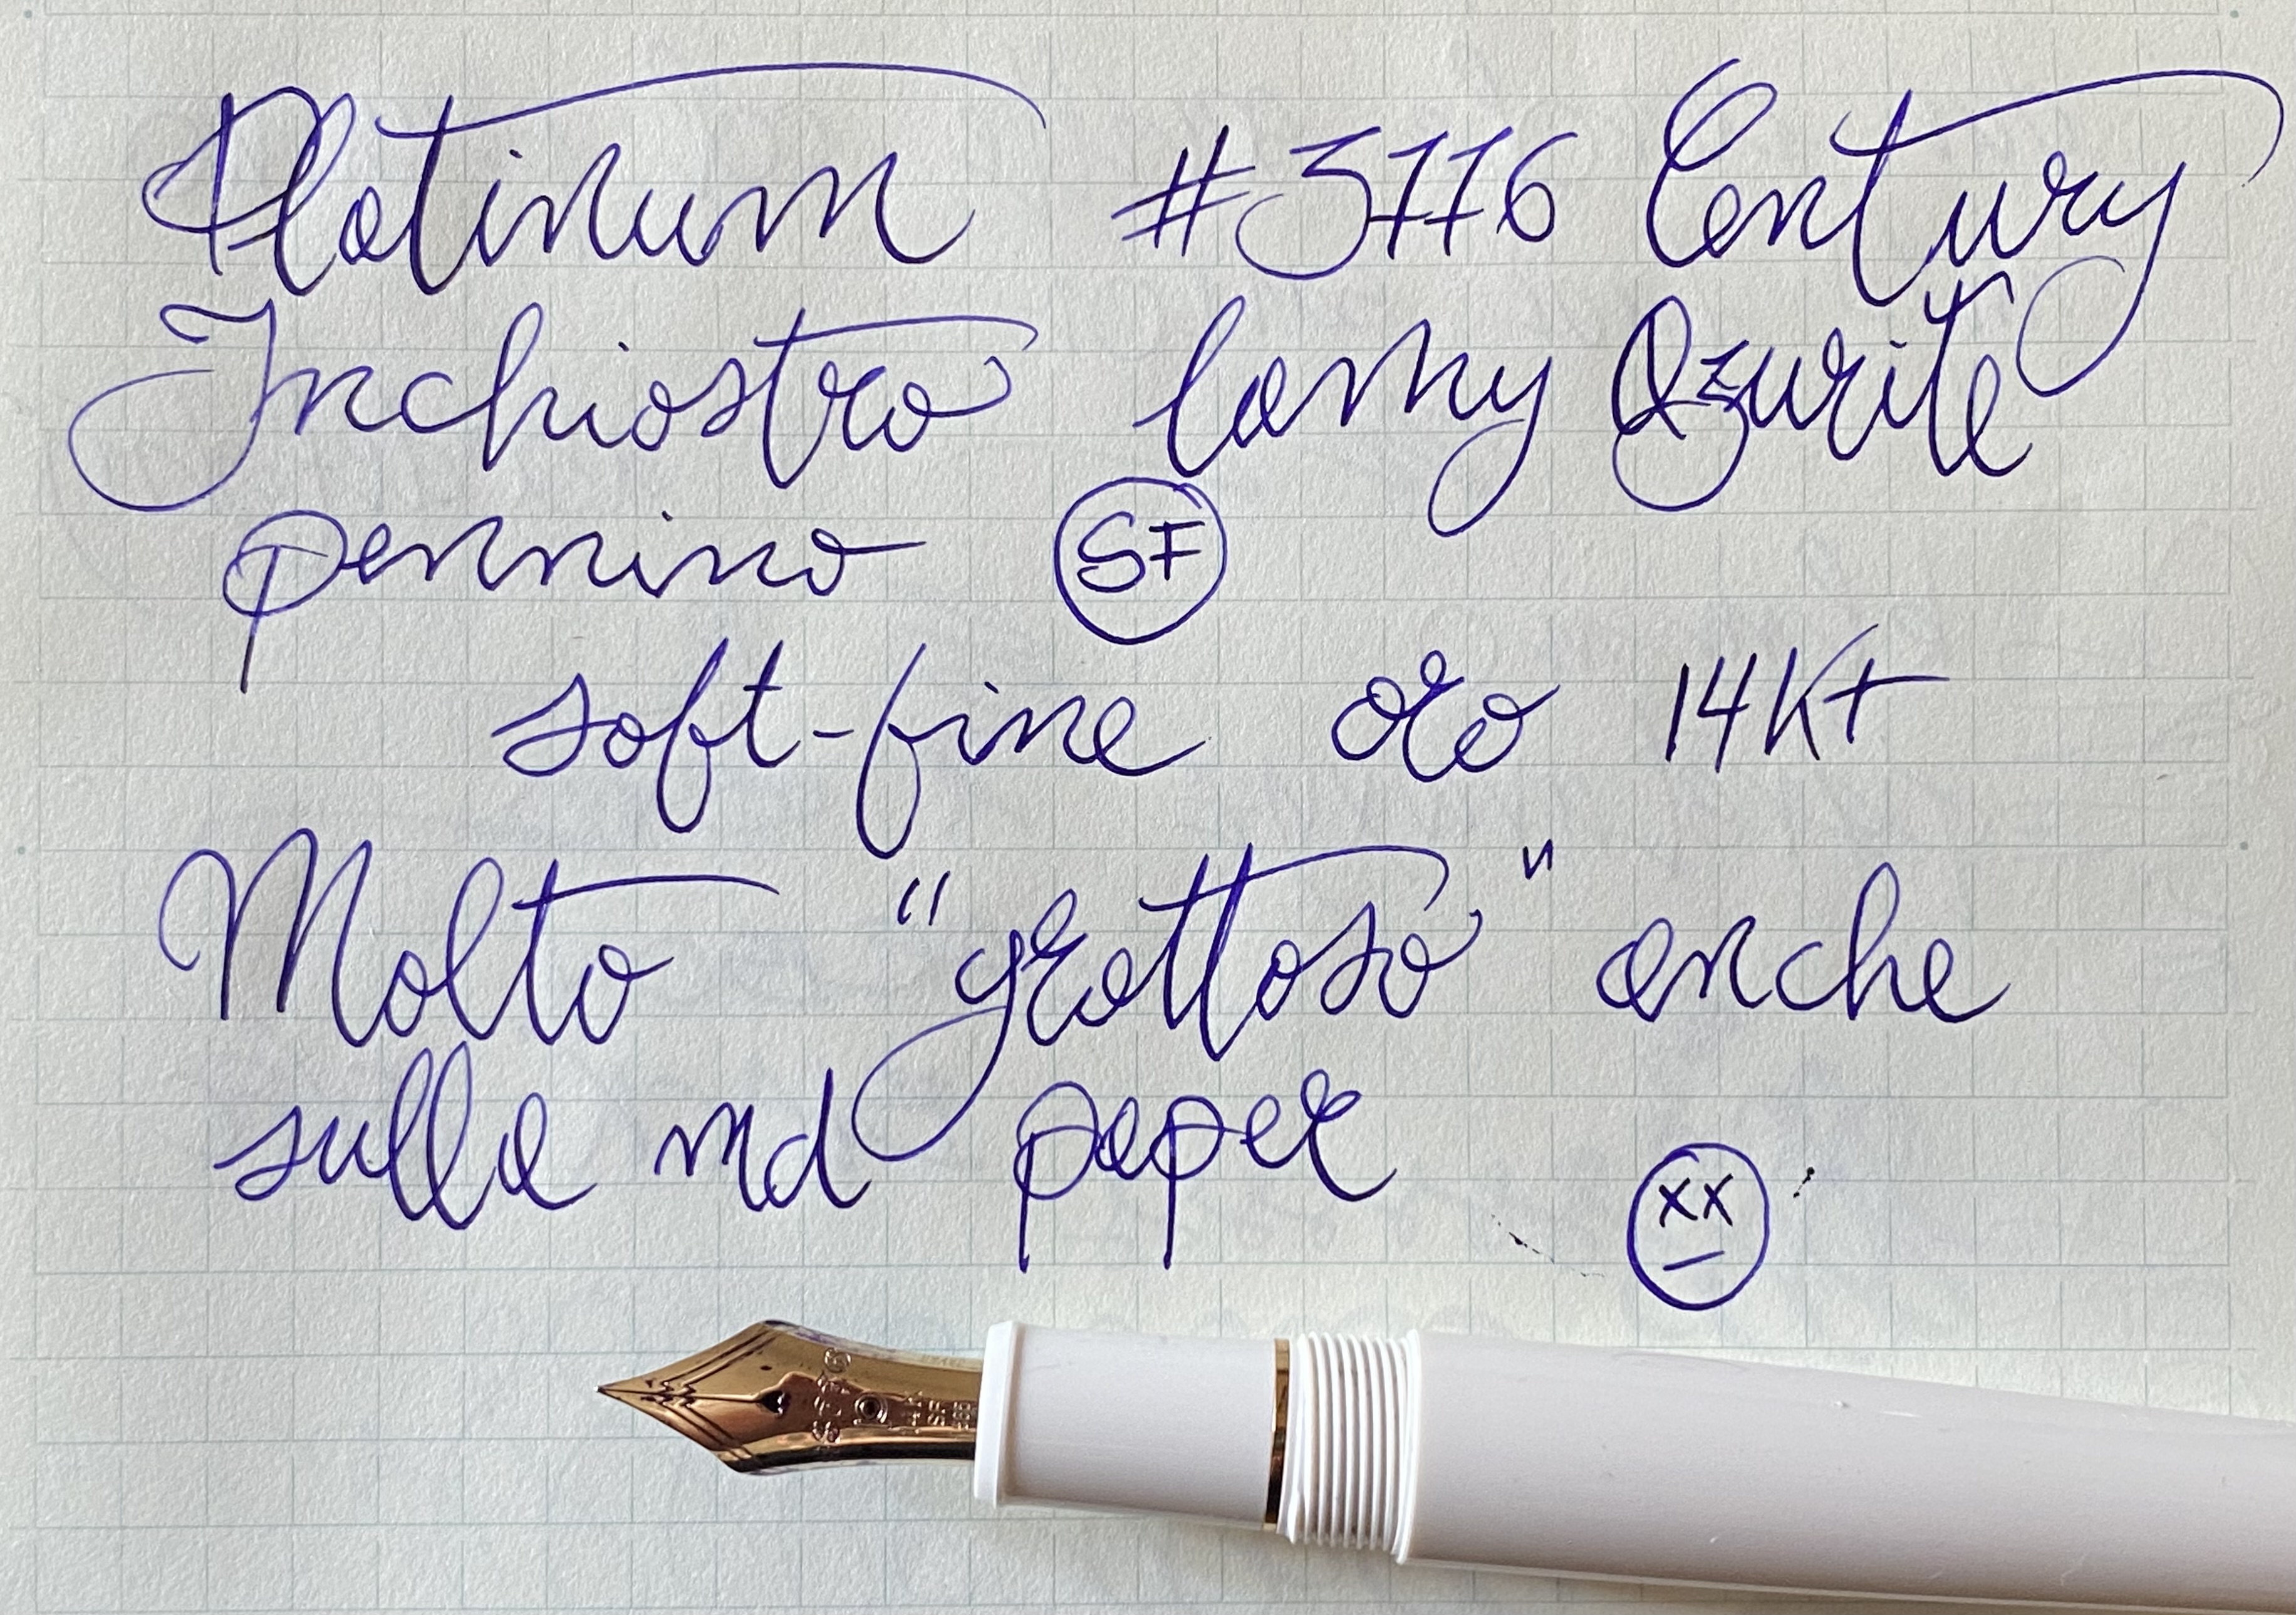 Platinum #3776 Century
Inchiostro lamy Azurite
pennino SF
soft-fine oro 14Kt
Molto "grattoso" anche
sulla md paper
xx